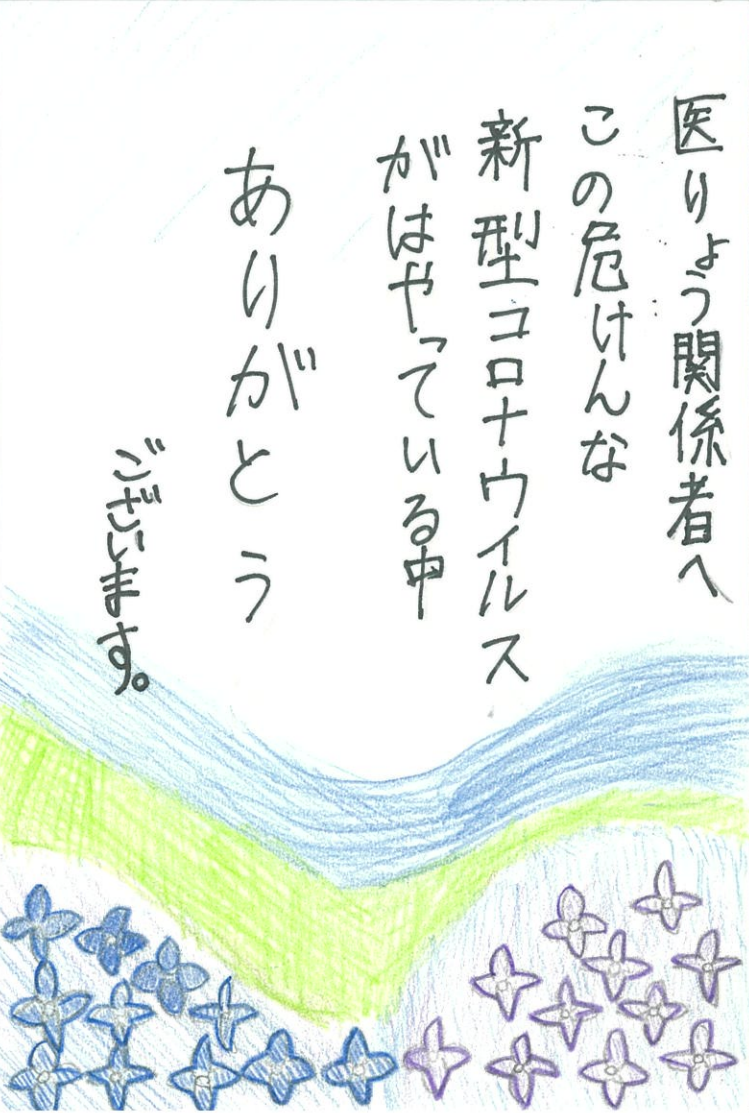 医りょう関係者へ
この危けんな
新型コロナウイルス
がはやっている中
ありがとう
ございます。